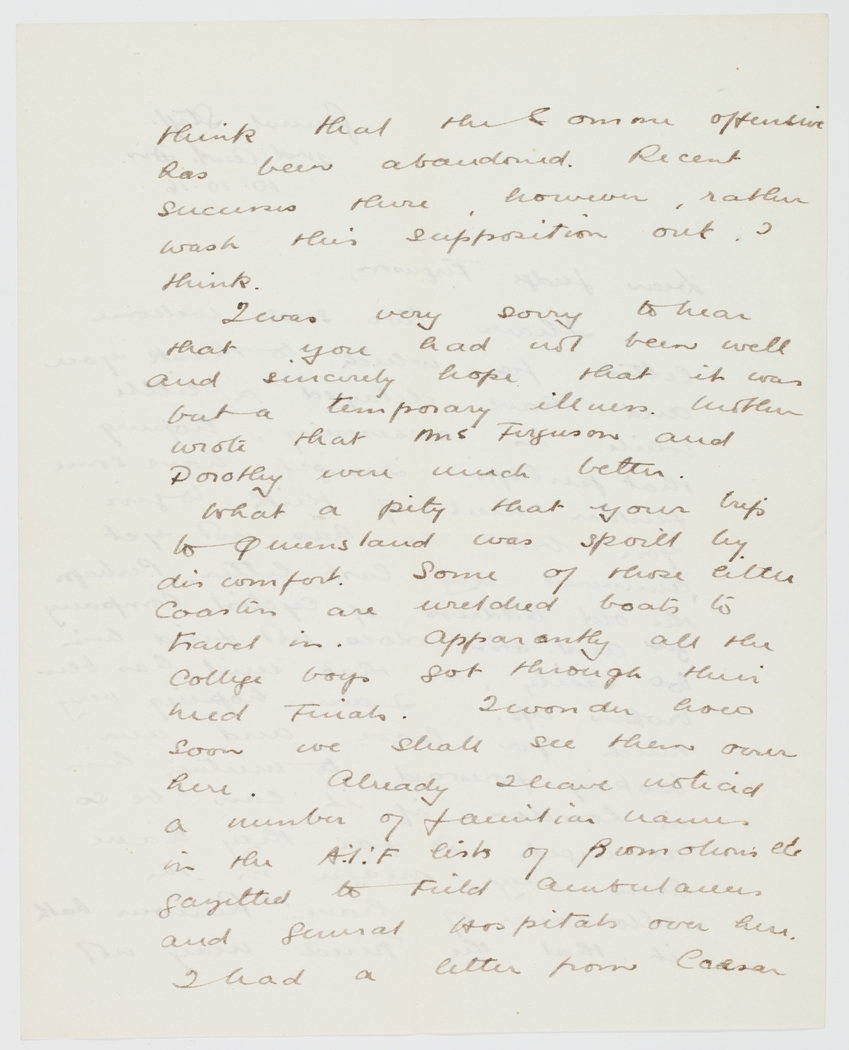 think that the Somme offensive
has been abandoned. Recent
successes there, however, rather
wash this supposition out. I
think.
I was very sorry to hear
that you had not been well
and sincerely hope that it was
but a temporary illness. Mother
wrote that Mrs Ferguson and
Dorothy were much better.
What a pity that your trip
to Queensland was spoilt by
discomfort. Some of those little
Coasters are wretched boats to
travel in. Apparantly all the
College boys got through their
Med Finals. I wonder how
soon we shall see them over
here. Already I have noticed
a number of familiar names
in the A.I.F lists of Promotions etc
gazetted to Field Ambulances
and General Hospitals over here.
I had a letter from Caesar